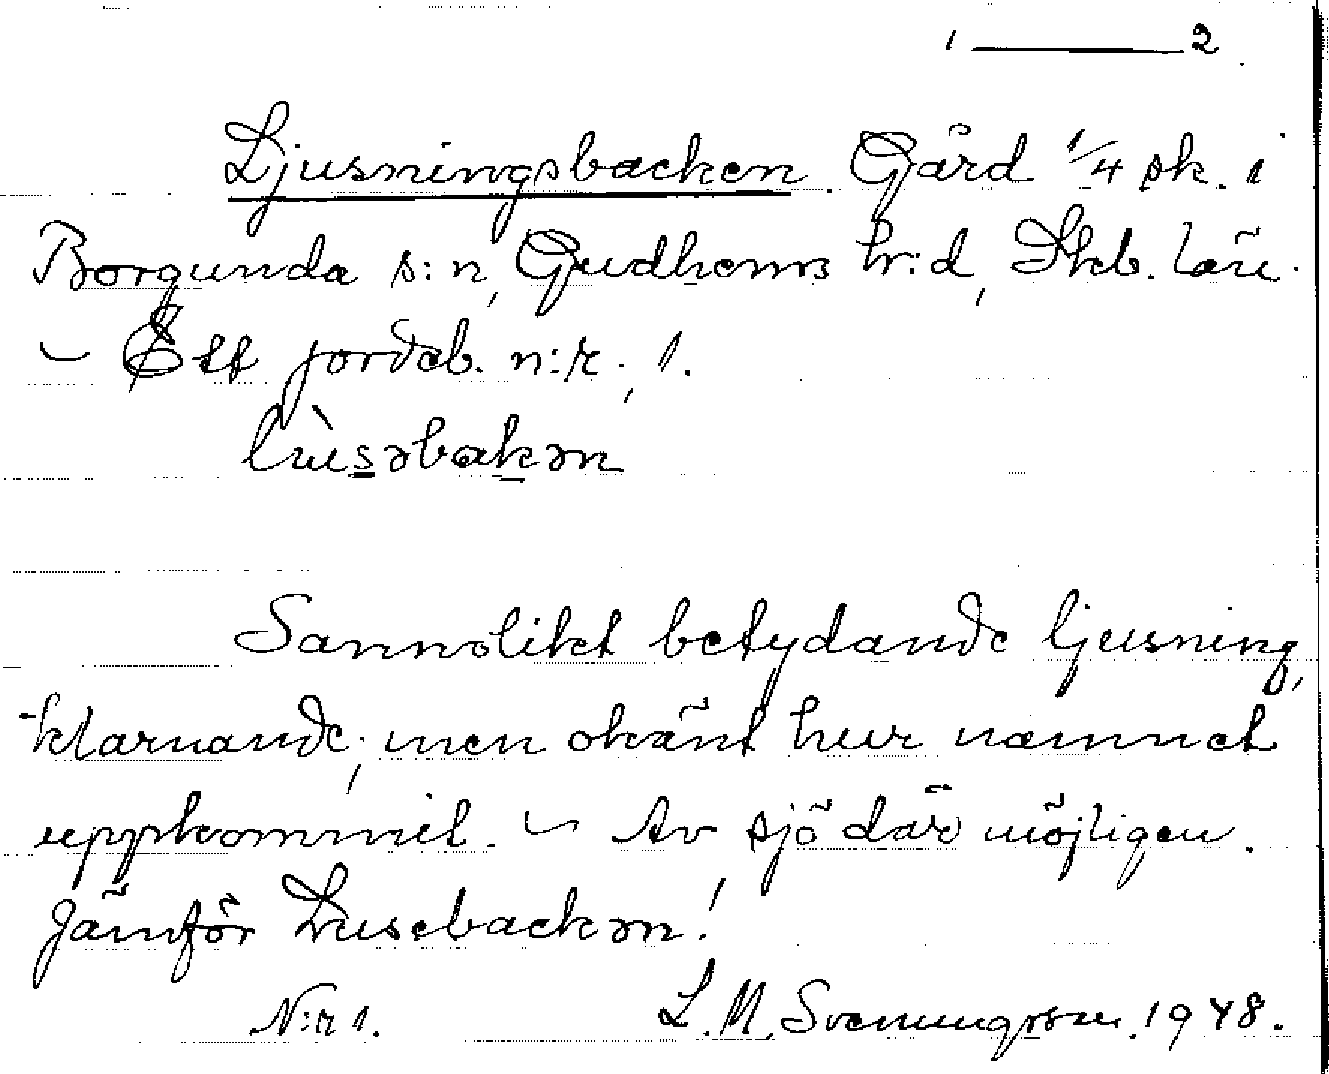 1 —— 2
Ljusningsbacken. Gård 1/4 sk. i
Borgunda s:n, Gudhems hr:d, Skb. län.
– Ett jordeb. n:r., 1.
Sannolikt betydande ljusning,
klarnande; men okänt hur namnet
uppkommit. – Av sjö där möjligen.
Jämför Lusebacken!
N:r 1. L. M. Svenungsson. 1948.